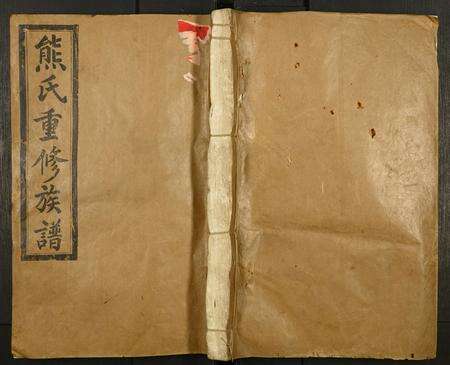 熊氏重修族譜